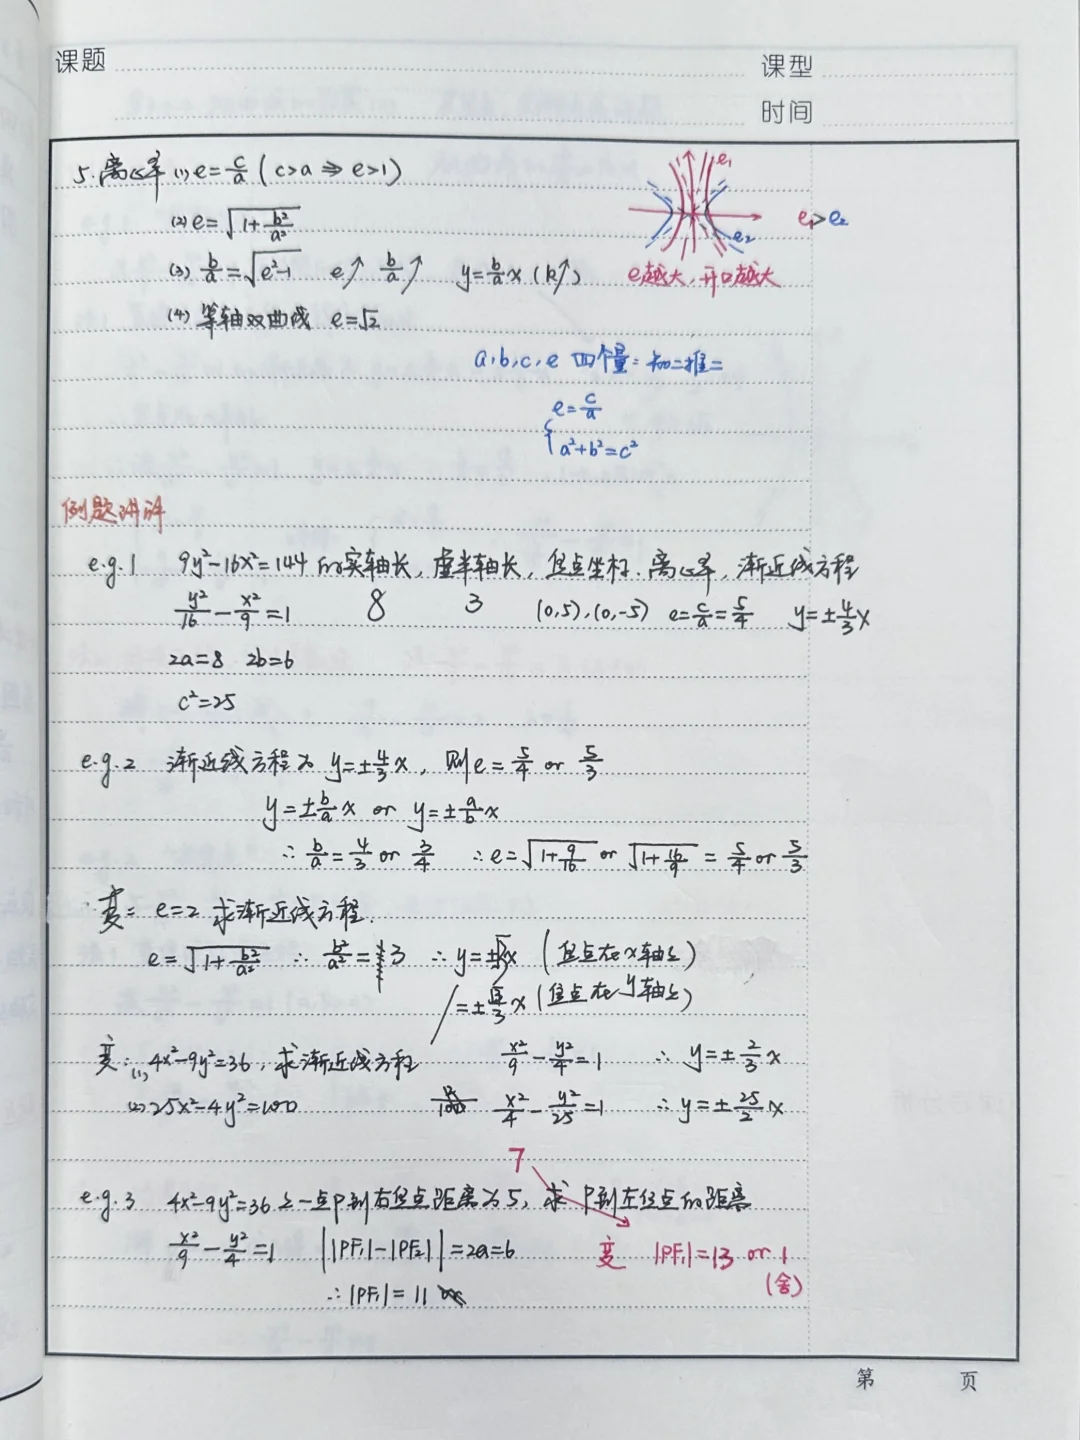 课题
课型
时间
5. 离心率 (1) e=c/a (c>a ⇒ e>1)
(2) e=√(1+b²/a²)
(3) b/a=√(e²-1) e↑ b/a↑ y=b/a x (k↑)
(4) 等轴双曲线 e=√2
e₁
e₂
e₁>e₂
e越大，开口越大
a,b,c,e 四个量：知二推二
e=c/a
a²+b²=c²
例题讲评
e.g.1 9y²-16x²=144 的实轴长，虚半轴长，焦点坐标、离心率，渐近线方程
y²/16-x²/9=1 8 3 (0,5),(0,-5) e=c/a=5/4 y=±4/3x
2a=8 2b=6
c²=25
e.g.2 渐近线方程为 y=±4/3x，则e=5/4 or 5/3
y=±b/a x or y=±a/b x
∴ b/a=4/3 or 3/4 ∴e=√(1+9/16) or √(1+16/9) = 5/4 or 5/3
变：e=2 求渐近线方程.
e=√(1+b²/a²) ∴ b²/a²=3 ∴ y=±√3x (焦点在x轴上)
=±√3/3x (焦点在y轴上)
变：(1) 4x²-9y²=36，求渐近线方程 x²/9-y²/4=1 ∴ y=±2/3x
(2) 25x²-4y²=100 x²/4-y²/25=1 ∴ y=±25/2x
7
e.g.3 4x²-9y²=36上一点P到右焦点距离为5，求P到左焦点的距离
x²/9-y²/4=1 ||PF₁|-|PF₂||=2a=6 变 |PF₁|=13 or 1
(舍)
∴|PF₁|=11
第 页